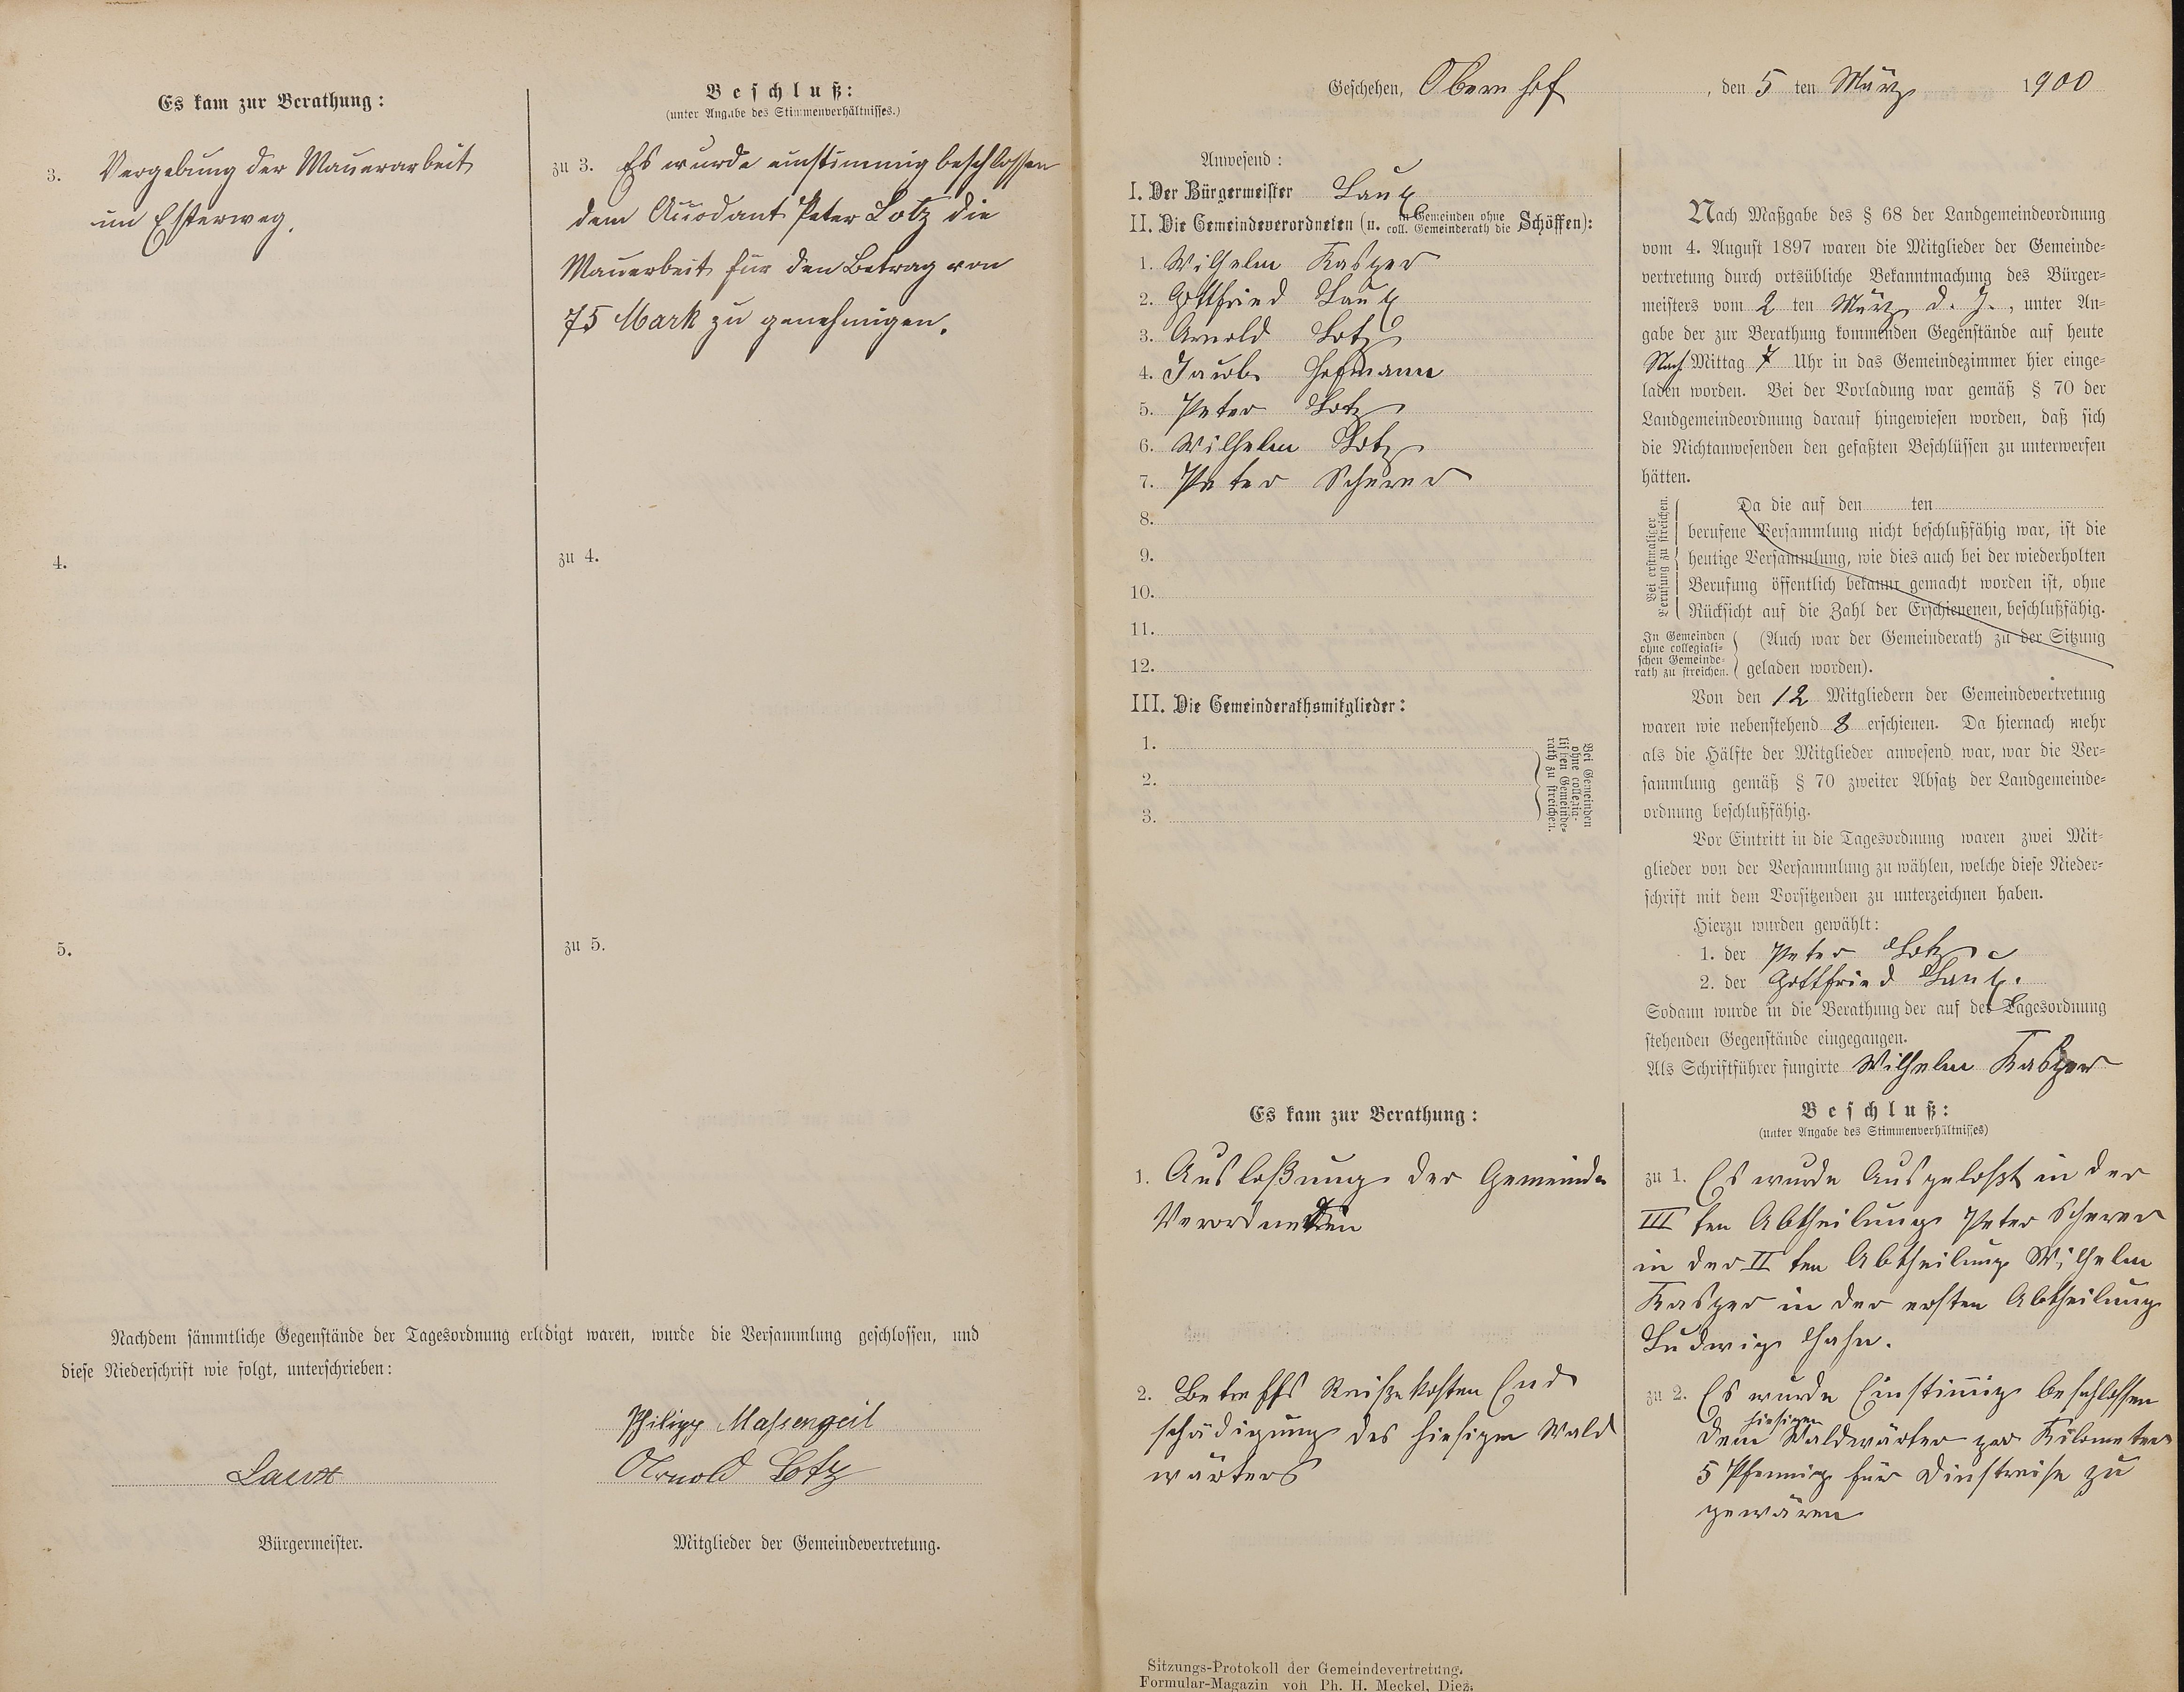 Es kam zur Berathung:
3. Vergebung der Mauerarbeit
im Esterweg.
4.
5.
Beschluß:
(unter Angabe des Stimmenverhältnisses.)
zu 3. Es wurde einstimmig beschlossen
dem Peter Lotz die
Mauerbeit für den Betrag von
75 Mark zu genehmigen.
zu 4.
zu 5.
Nachdem sämmtliche Gegenstände der Tagesordnung erledigt waren, wurde die Versammlung geschlossen, und
diese Niederschrift wie folgt, unterschrieben:
Philipp Massengeil
Laux
Arnold Lotz
Bürgermeister.
Mitglieder der Gemeindevertretung.
Geschehen, Obernhof, den 5 ten März 1900
Anwesend:
I. Der Bürgermeister Laux
II. Die Gemeindeverordneten (u. in Gemeinden ohne coll. Gemeinderath die Schöffen):
1. Wilhelm Kasper
2. Gottfried Laux
3. Arnold Lotz
4. Jacob Hofmann
5. Peter Lotz
6. Wilhelm Lotz
7. Peter Scherer
8.
9.
10.
11.
12.
III. Die Gemeinderathsmitglieder:
1.
2.
3.
Bei Gemeinden
ohne collegia-
lischen Gemeinde-
rath zu streichen.
Nach Maßgabe des § 68 der Landgemeindeordnung
vom 4. August 1897 waren die Mitglieder der Gemeinde-
vertretung durch ortsübliche Bekanntmachung des Bürger-
meisters vom 2 ten März d. J., unter An-
gabe der zur Berathung kommenden Gegenstände auf heute
Nach Mittag 7 Uhr in das Gemeindezimmer hier einge-
laden worden. Bei der Vorladung war gemäß § 70 der
Landgemeindeordnung darauf hingewiesen worden, daß sich
die Nichtanwesenden den gefaßten Beschlüssen zu unterwerfen
hätten.
Bei erstmaliger
Berufung zu streichen.
Da die auf den ten
berufene Versammlung nicht beschlußfähig war, ist die
heutige Versammlung, wie dies auch bei der wiederholten
Berufung öffentlich bekannt gemacht worden ist, ohne
Rücksicht auf die Zahl der Erschienenen, beschlußfähig.
In Gemeinden
ohne collegiali-
schen Gemeinde-
rath zu streichen.
(Auch war der Gemeinderath zu der Sitzung
geladen worden).
Von den 12 Mitgliedern der Gemeindevertretung
waren wie nebenstehend 8 erschienen. Da hiernach mehr
als die Hälfte der Mitglieder anwesend war, war die Ver-
sammlung gemäß § 70 zweiter Absatz der Landgemeinde-
ordnung beschlußfähig.
Vor Eintritt in die Tagesordnung waren zwei Mit-
glieder von der Versammlung zu wählen, welche diese Nieder-
schrift mit dem Vorsitzenden zu unterzeichnen haben.
Hierzu wurden gewählt:
1. der Peter Lotz
2. der Gottfried Laux.
Sodann wurde in die Berathung der auf der Tagesordnung
stehenden Gegenstände eingegangen.
Als Schriftführer fungirte Wilhelm Kasper
Es kam zur Berathung:
1. Ausloßung der Gemeinde
Verordneten
2. Betreffs Reißekosten End
schädigung des hiesigen Wald
wärters
Beschluß:
(unter Angabe des Stimmenverhältnisses)
zu 1. Es wurde Ausgeloßt in der
III ten Abtheilung Peter Scherer
in der II ten Abtheilung Wilhelm
Kasper in der ersten Abtheilung
Ludwig Hahn.
zu 2. Es wurde Einstimig beschlossen
dem hiesigen Waldwärter per Kilometer
5 Pfennig für Dinstreise zu
gewären
Sitzungs-Protokoll der Gemeindevertretung.
Formular-Magazin von Ph. H. Meckel, Diez.